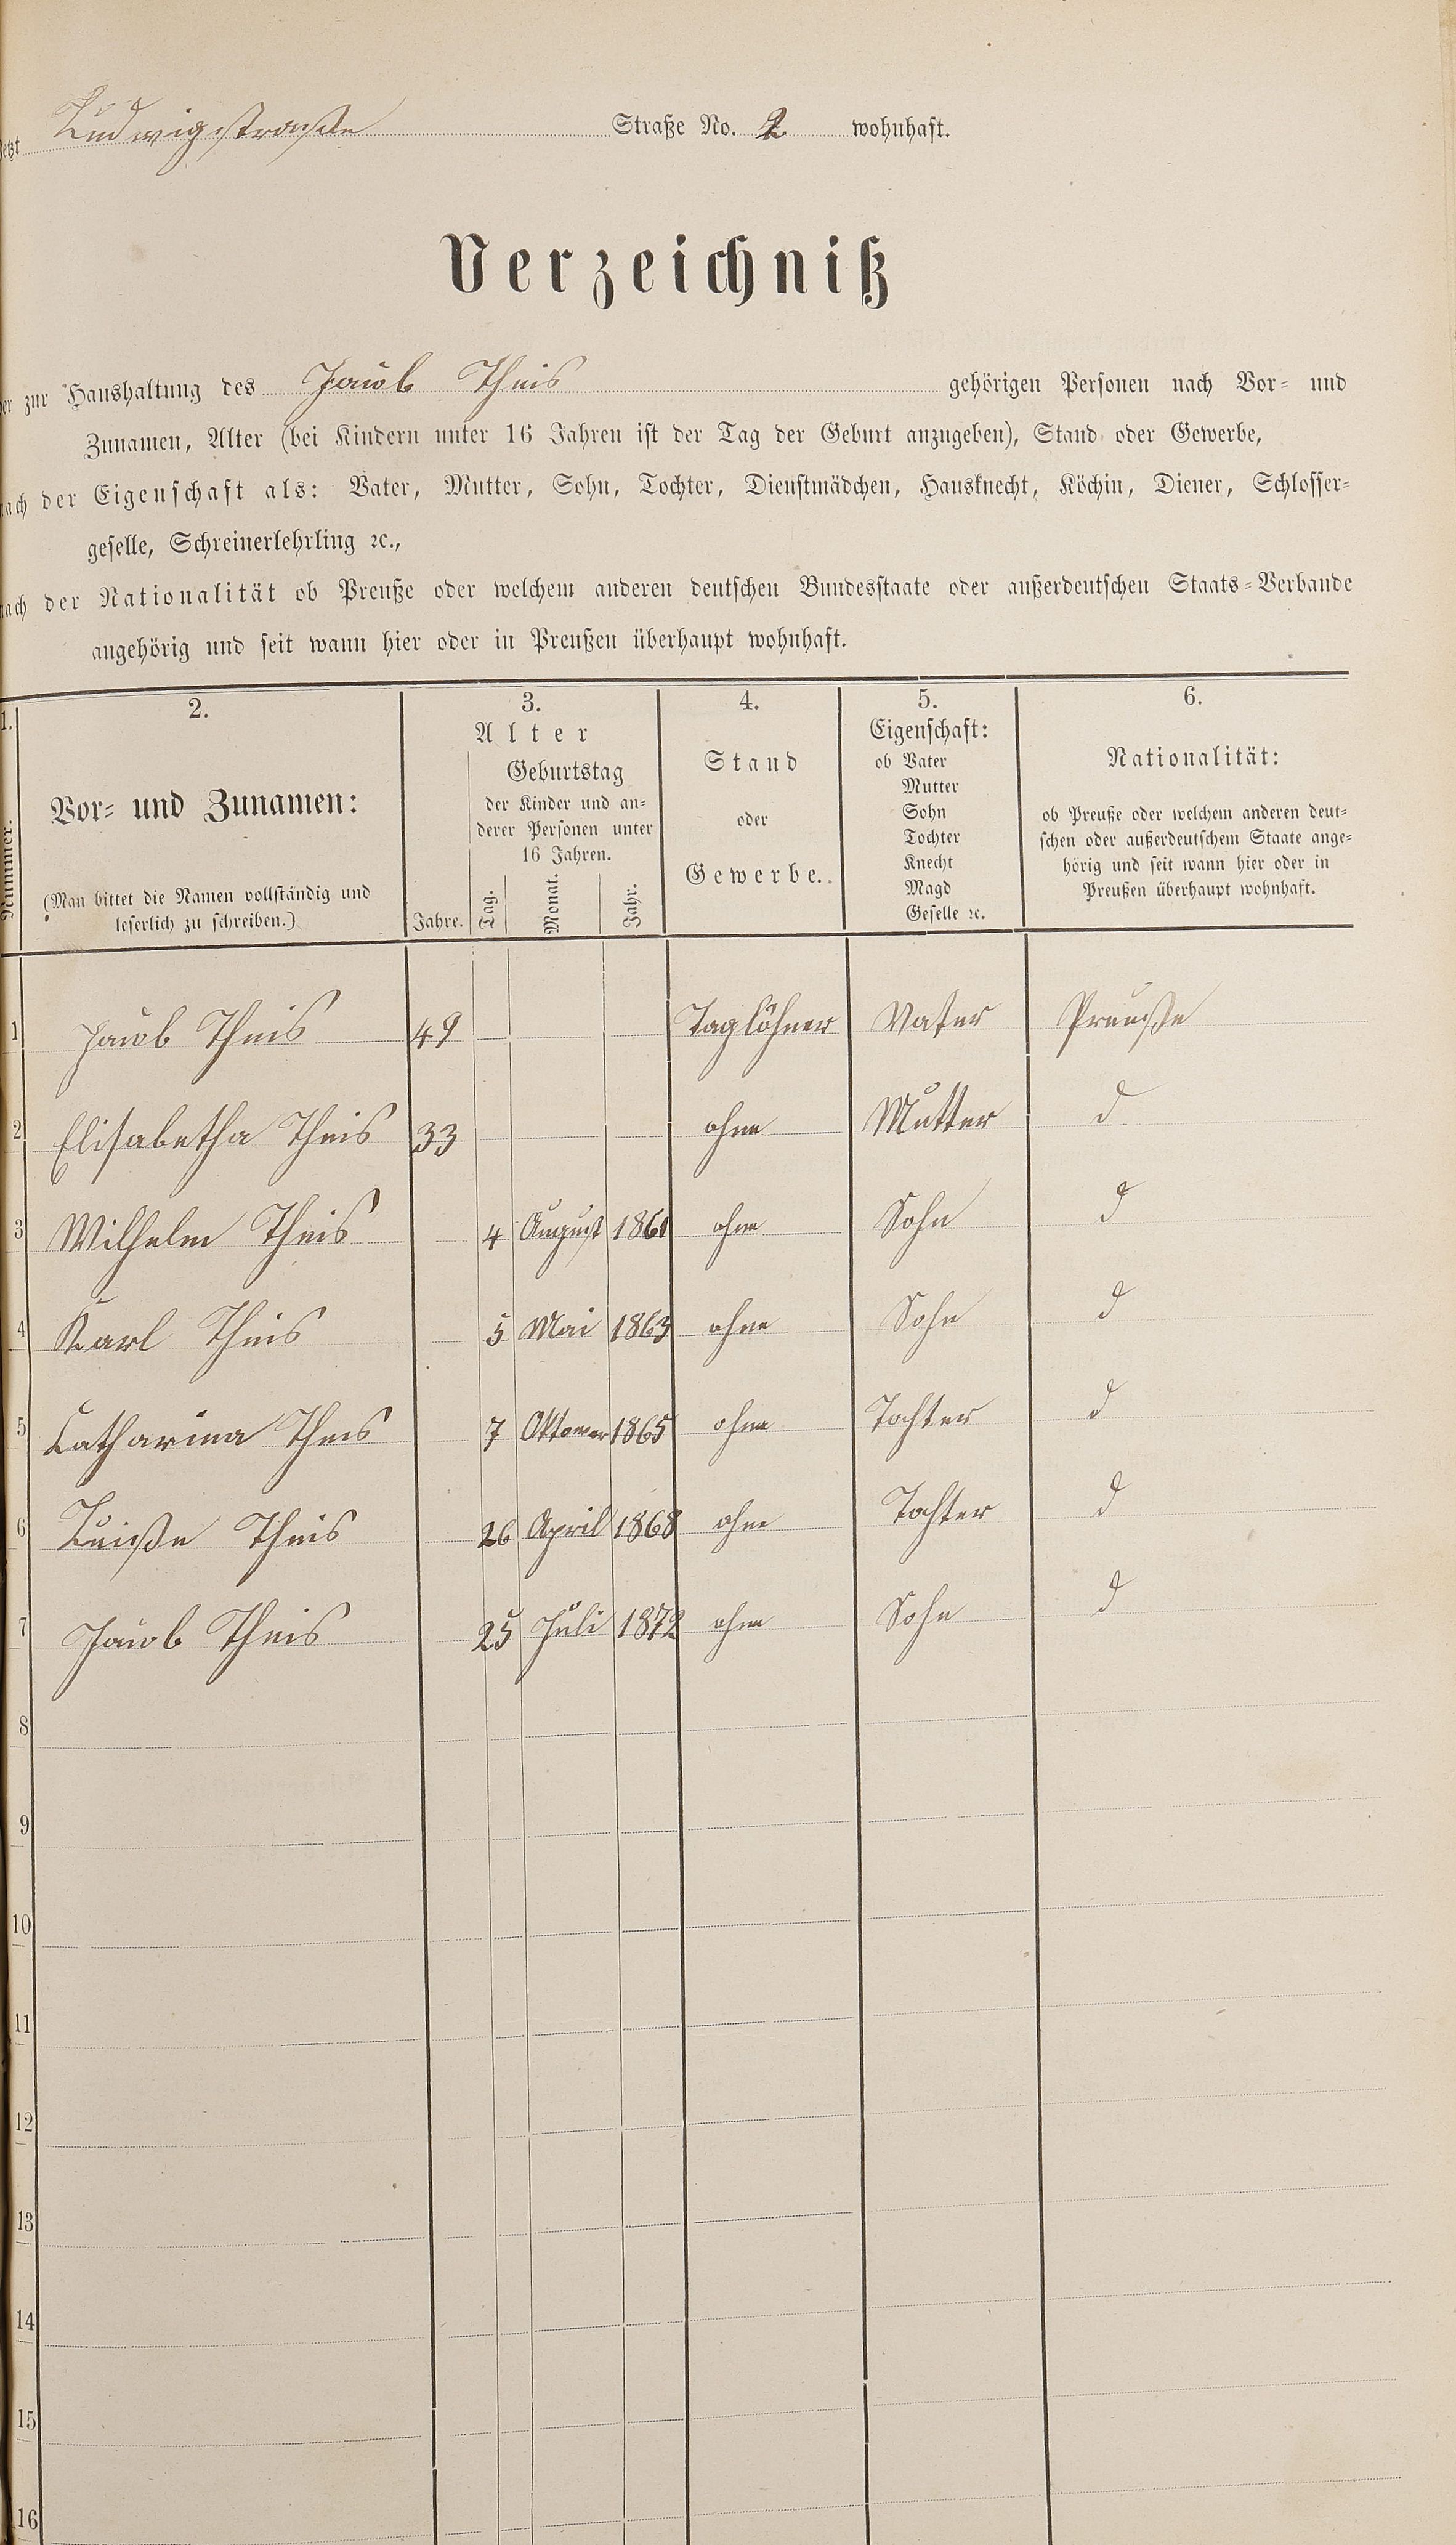 jetzt Ludwigstraße Straße No. 2 wohnhaft.
Verzeichniß
der zur Haushaltung des Jacob Theis gehörigen Personen nach Vor- und
Zunamen, Alter (bei Kindern unter 16 Jahren ist der Tag der Geburt anzugeben), Stand oder Gewerbe,
nach der Eigenschaft als: Vater, Mutter, Sohn, Tochter, Dienstmädchen, Hausknecht, Köchin, Diener, Schlosser-
geselle, Schreinerlehrling ꝛc.,
nach der Nationalität ob Preuße oder welchem anderen deutschen Bundesstaate oder außerdeutschen Staats-Verbande
angehörig und seit wann hier oder in Preußen überhaupt wohnhaft.
1. 2. 3. 4. 5. 6.
Nummer.
Vor- und Zunamen:
(Man bittet die Namen vollständig und
leserlich zu schreiben.)
Alter
Geburtstag
der Kinder und an-
derer Personen unter
16 Jahren.
Jahre. Tag. Monat. Jahr.
Stand
oder
Gewerbe.
Eigenschaft:
ob Vater
Mutter
Sohn
Tochter
Knecht
Magd
Geselle ꝛc.
Nationalität:
ob Preuße oder welchem anderen deut-
schen oder außerdeutschem Staate ange-
hörig und seit wann hier oder in
Preußen überhaupt wohnhaft.
1 Jacob Theis 49 Taglöhner Vater Preuße
2 Elisabetha Theis 33 ohne Mutter d
3 Wilhelm Theis 4 August 1861 ohne Sohn d
4 Karl Theis 5 Mai 1863 ohne Sohn d
5 Catharina Theis 7 Oktower 1865 ohne Tochter d
6 Luiße Theis 26 April 1868 ohne Tochter d
7 Jacob Theis 25 Juli 1872 ohne Sohn d
8
9
10
11
12
13
14
15
16